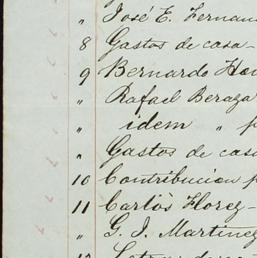 " José E. Fernan
8 Gastos de casa -
9 Bernardo
" Rafael Beraza
" idem " p
" Gastos de casa
10 Contribucion p
11 Carlos Florez -
" G. J. Martinez
12